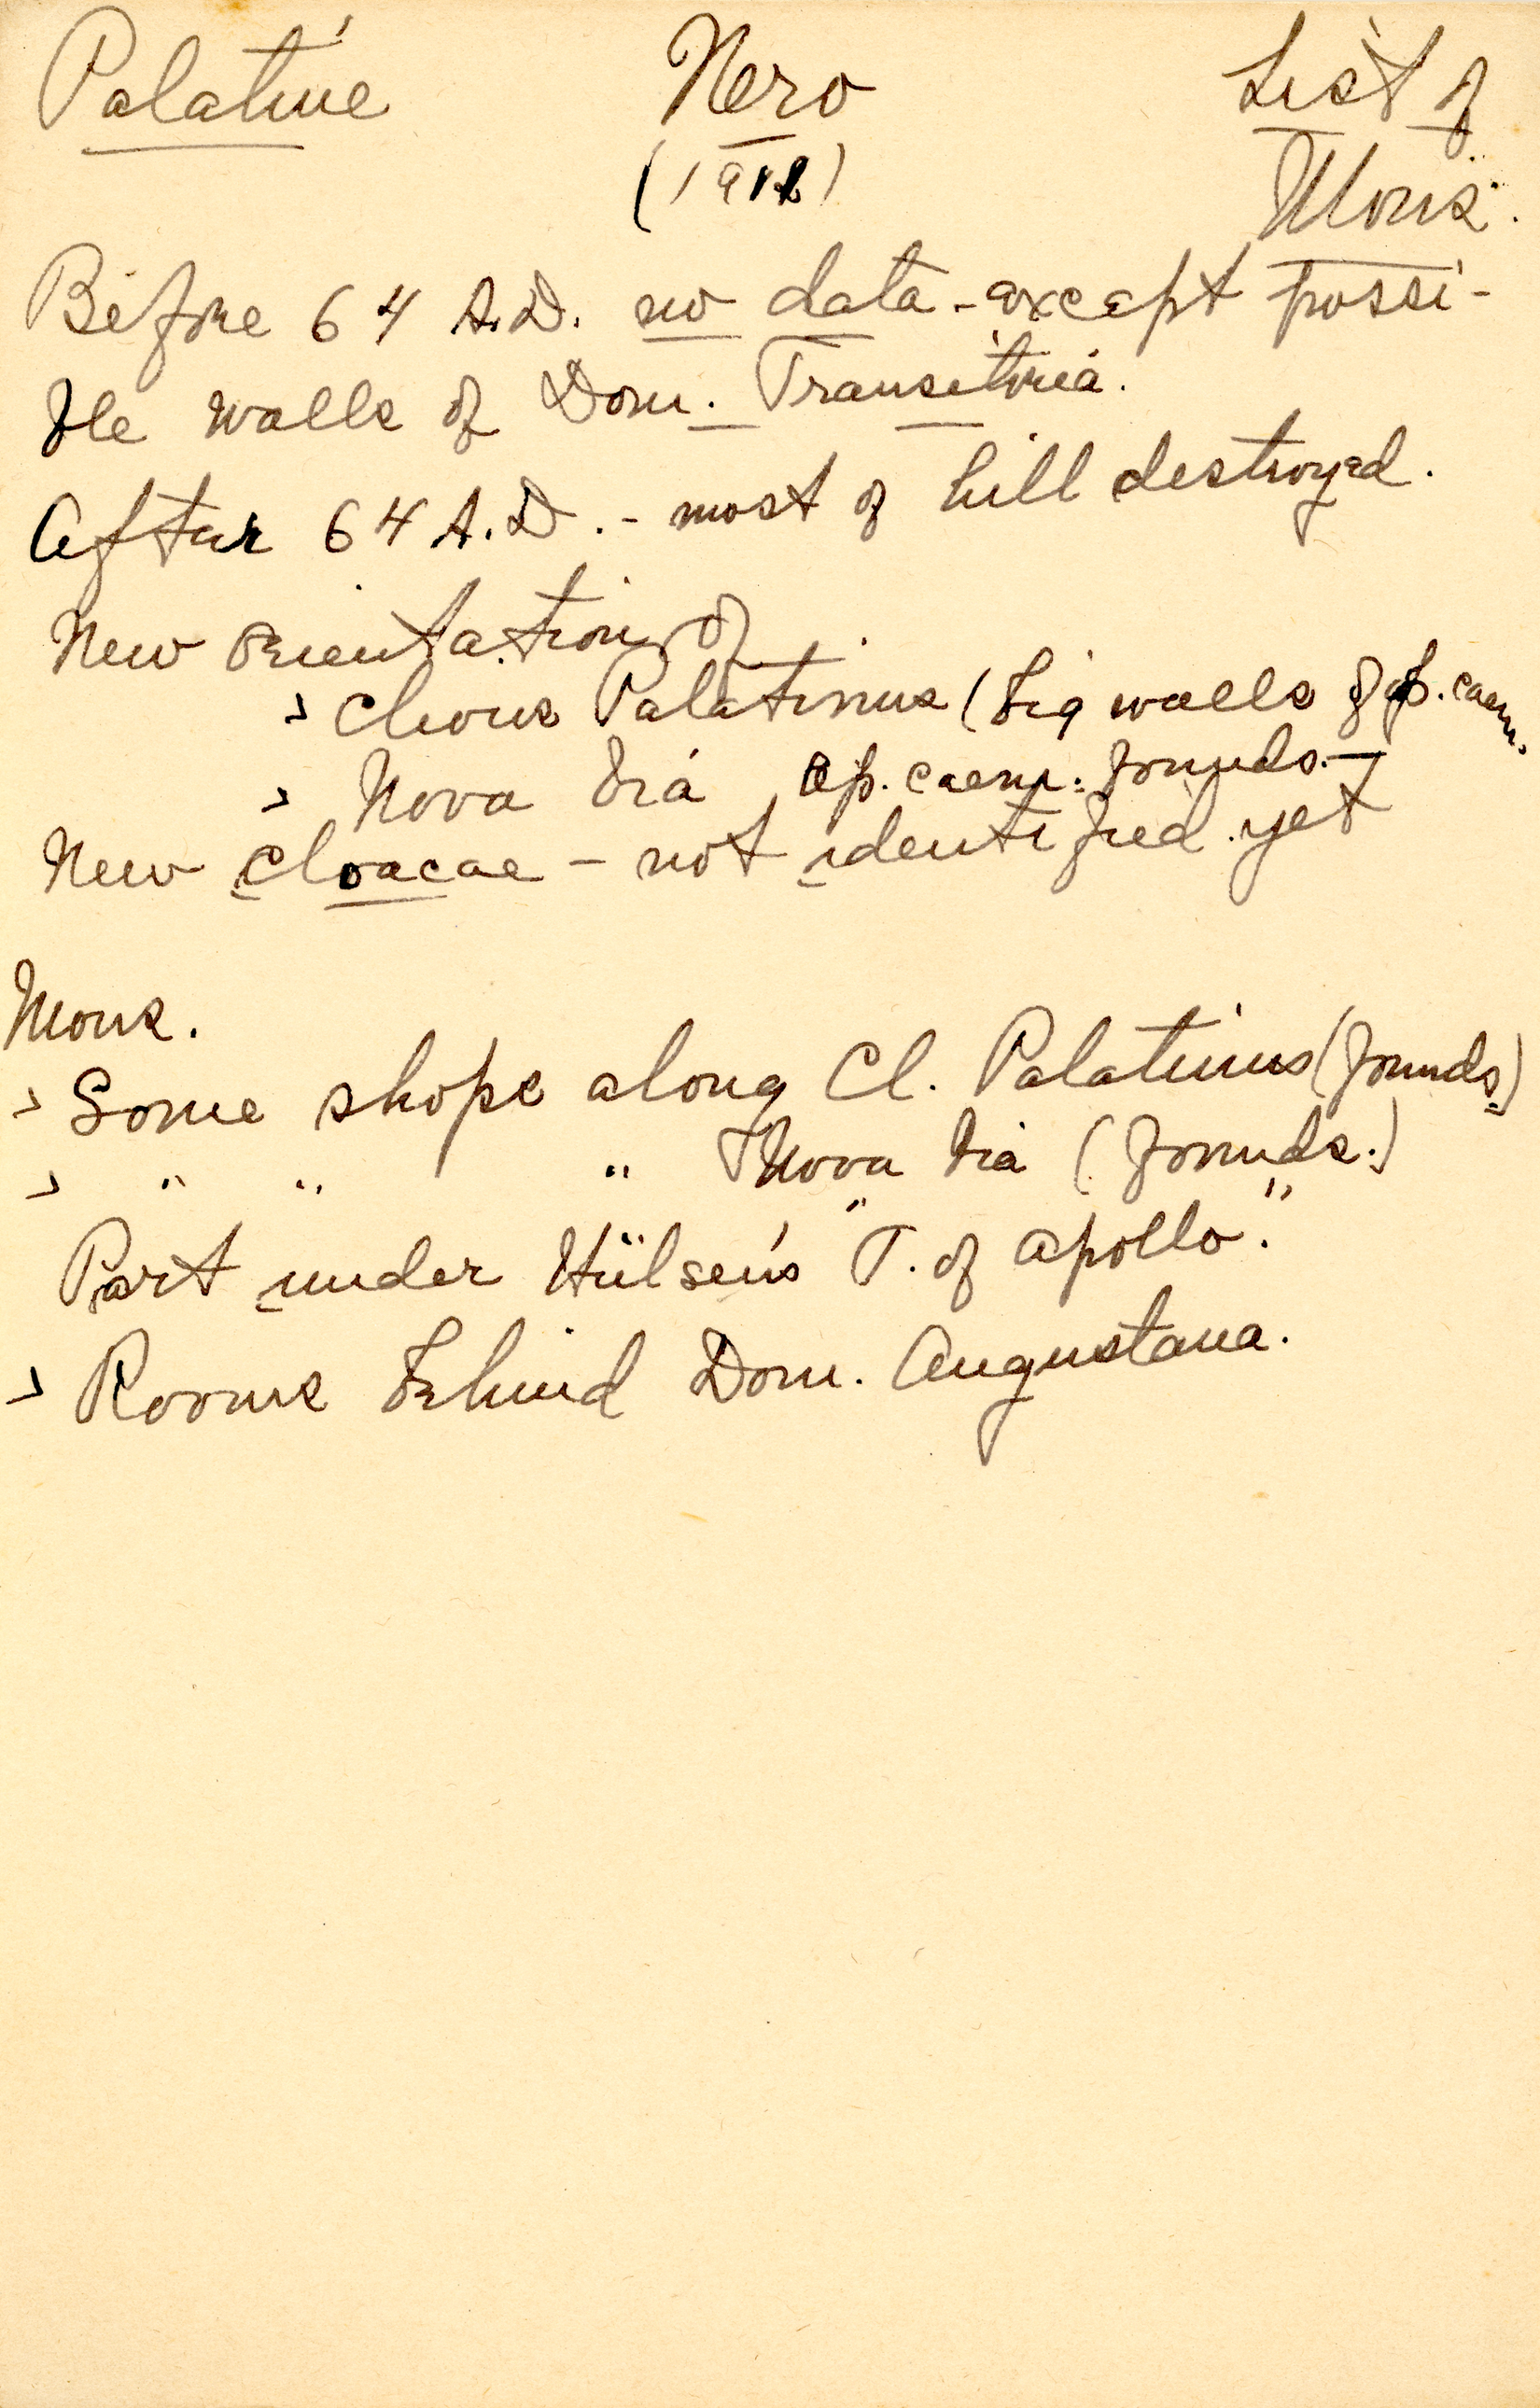 Palatine Nero List of
(1912) Mons.
Before 64 A.D. no data - except possi-
ble walls of Dom. Transitoria.
After 64 A.D. - most of hill destroyed.
New orientation of
> Clivus Palatinus (big walls of op. caem.
> Nova Via op. caem. founds. -
New cloacae - not identified yet
Mons.
> Some shops along Cl. Palatinus (founds)
> " " " Nova Via (founds.)
Part under Hülsen's "T. of Apollo."
> Rooms behind Dom. Augustana.